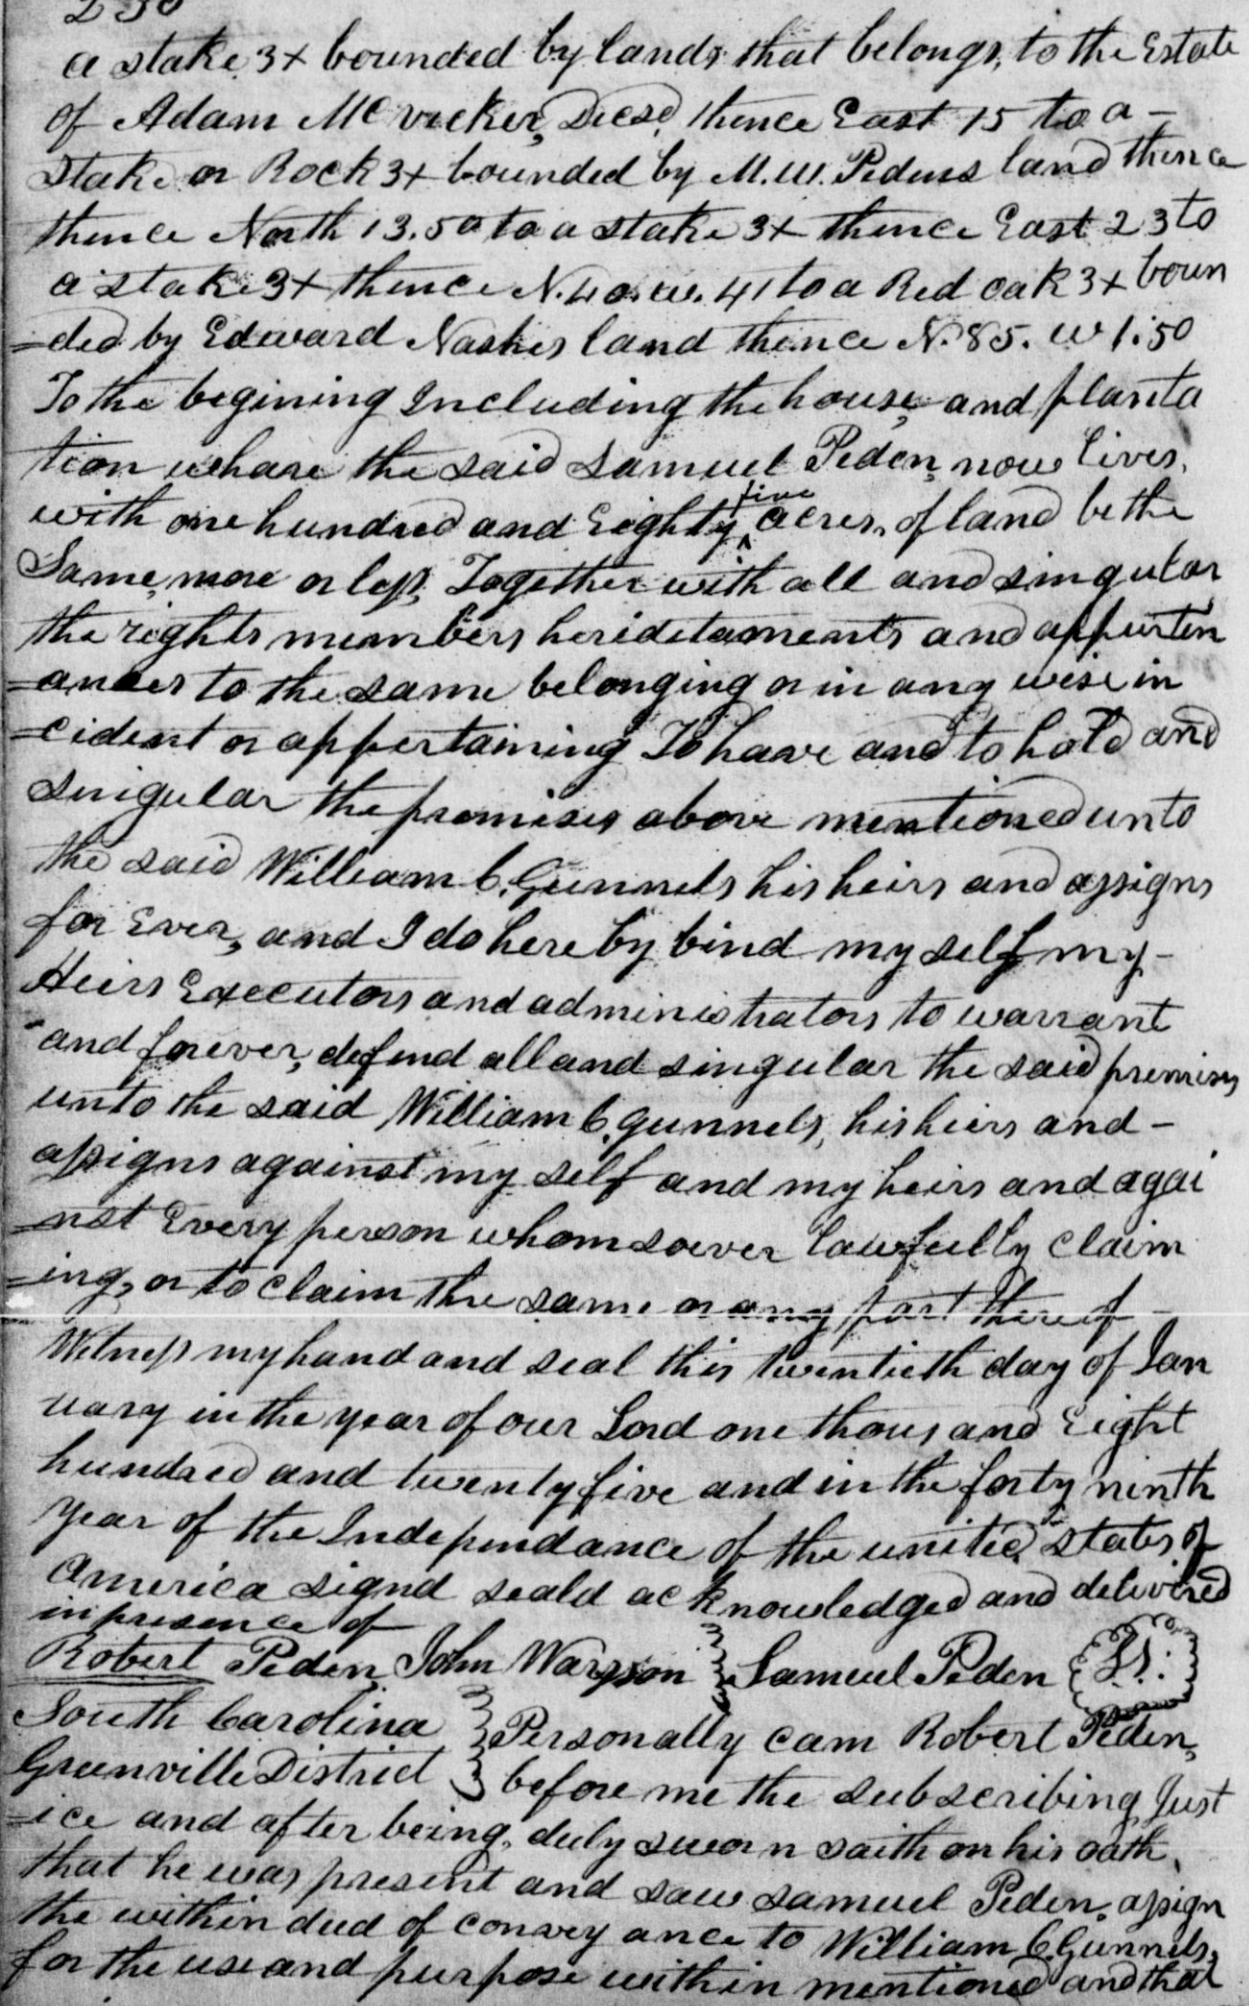 230
a stake 3x bounded by lands that belongs to the Estate
of Adam McVicker, Decsd, thence East 15 to a -
Stake or Rock 3x bounded by M. W. Pedens land thence
thence North 13.50 to a stake 3x thence East 23 to
a stake 3x thence N. 40. W. 41 to a Red oak 3x boun
=ded by Edward Nashes land thence N. 85. W 1.50
To the begining Including the house and planta
tion whare the said Samuel Peden now lives,
with one hundred and Eighty five acres of land be the
Same more or less, Together with all and singular
the rights members heriditaments and appurten
=ances to the same belonging or in any wise in
=cident or appertaining To have and to hold and
singular the premises above mentioned unto
the said William C. Gunnels his heirs and assigns
for Ever, and I do here by bind my self my -
Heirs Executors and administrators to warrant
and forever, defend all and singular the said premises
unto the said William C. Gunnels, his heirs and -
assigns against my self and my heirs and agai
=nst Every person whomsoever lawfully claim
=ing, or to claim the same or any part there of -
Witness my hand and seal this twentieth day of Jan
uary in the year of our Lord one thousand Eight
hundred and twenty five and in the forty ninth
year of the Independance of the united states of
America signd seald acknowledged and delivered
in presence of
Robert Peden John Wasson Samuel Peden L.S.
South Carolina Personally cam Robert Peden,
Greenville District before me the subscribing Just
=ice and after being duly sworn saith on his oath,
that he was present and saw Samuel Peden assign
the within deed of convey ance to William C Gunnels,
for the use and purpose within mentioned and that